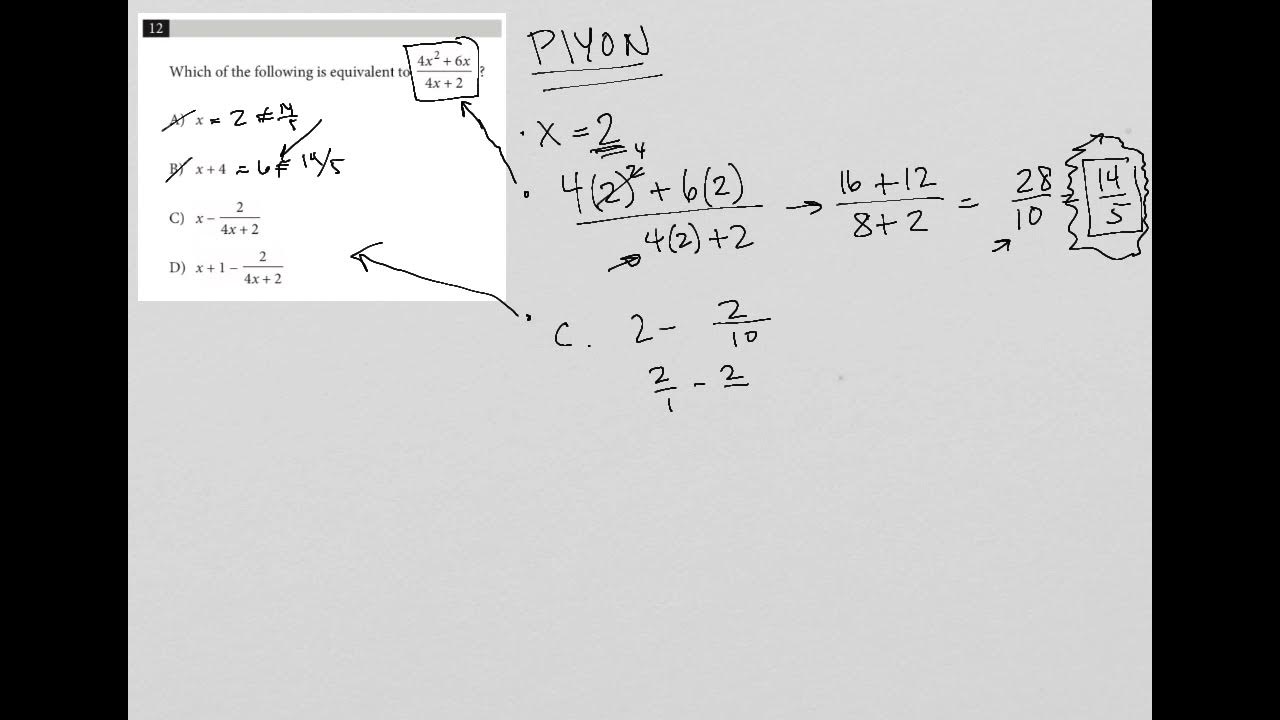 12
Which of the following is equivalent to (4x² + 6x)/(4x + 2) ?
A) x = 2 ≠ 14/5
B) x + 4 = 6 ≠ 14/5
C) x − 2/(4x + 2)
D) x + 1 − 2/(4x + 2)
PIYON
• x = 2
• (4(2)² + 6(2))/(4(2) + 2) → (16 + 12)/(8 + 2) = 28/10 = 14/5
4
• C. 2 − 2/10
2/1 − 2